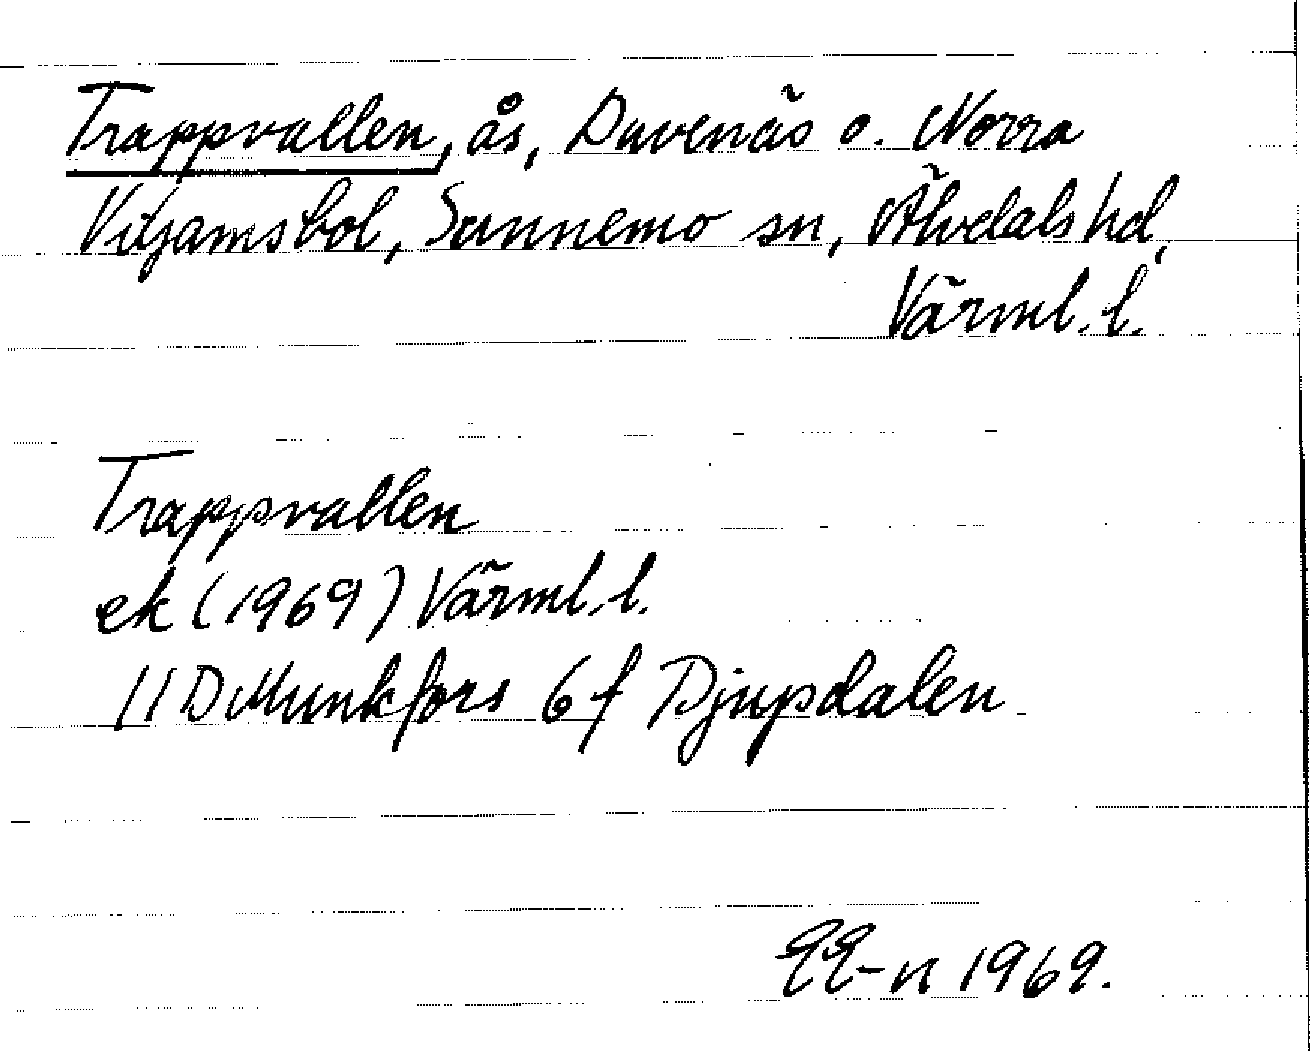 Trappvallen, ås, Duvenäs o. Norra
Viljamsbol, Sunnemo sn, Älvdals hd,
Värml. l.
Trappvallen
ek (1969) Värml. l.
11D Munkfors 6 f Djupdalen
1969.